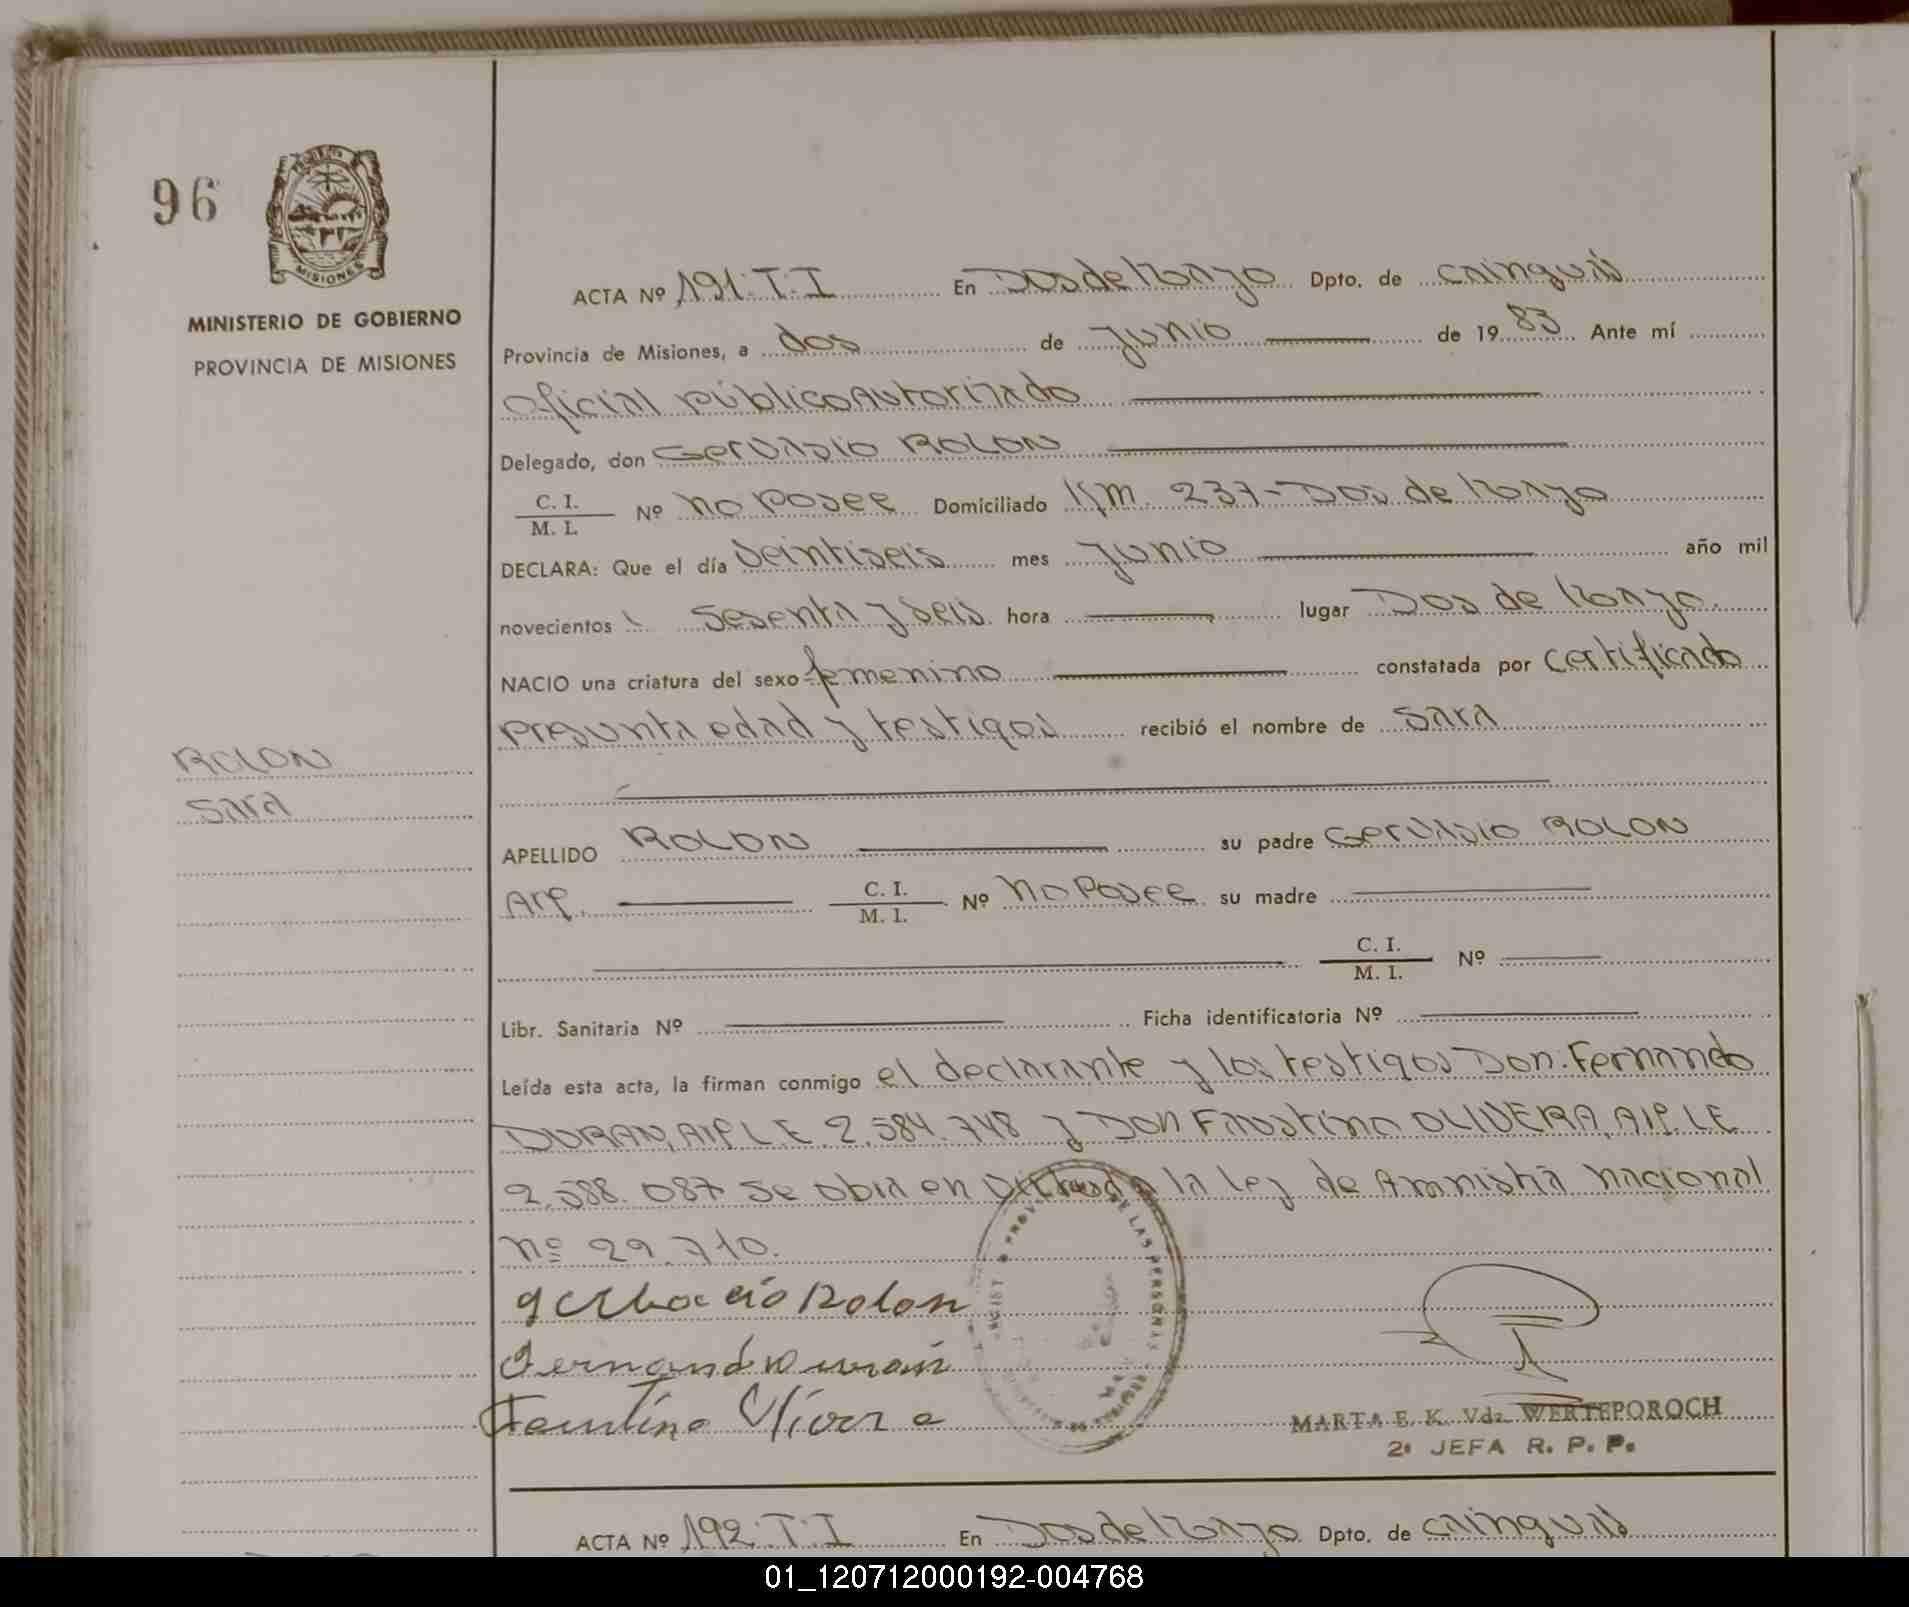 96
MISIONES
MINISTERIO DE GOBIERNO
PROVINCIA DE MISIONES
ACTA Nº 191. T. I En Dos de Mayo Dpto. de Cainguás
Provincia de Misiones, a dos de Junio de 1983 Ante mí
Oficial público Autorizado
Delegado, don Gervasio ROLON
C. I.
M. I. Nº No posee Domiciliado Km. 237 - Dos de Mayo
DECLARA: Que el día veintiseis mes Junio año mil
novecientos sesenta y seis hora lugar Dos de Mayo.
NACIO una criatura del sexo femenino constatada por certificado
presunta edad y testigos recibió el nombre de Sara
ROLON
Sara
APELLIDO ROLON su padre Gervasio ROLON
Arg. C. I.
M. I. Nº No Posee su madre
C. I.
M. I. Nº
Libr. Sanitaria Nº Ficha identificatoria Nº
Leída esta acta, la firman conmigo el declarante y los testigos Don. Fernando
DURAN, L.E. 2.584.748 y Don Faustino OLIVERA, L.E
2.588.087 se obra en virtud a la Ley de Amnistia Nacional
Nº 29.710.
Rolon
Fernando Duran
Faustino Olivera
DE LAS PERSONAS
MARTA E. K. Vda. WERTEPOROCH
2ª JEFA R. P. P.
ACTA Nº 192. T. I En Dos de Mayo Dpto. de Cainguás
01_120712000192-004768